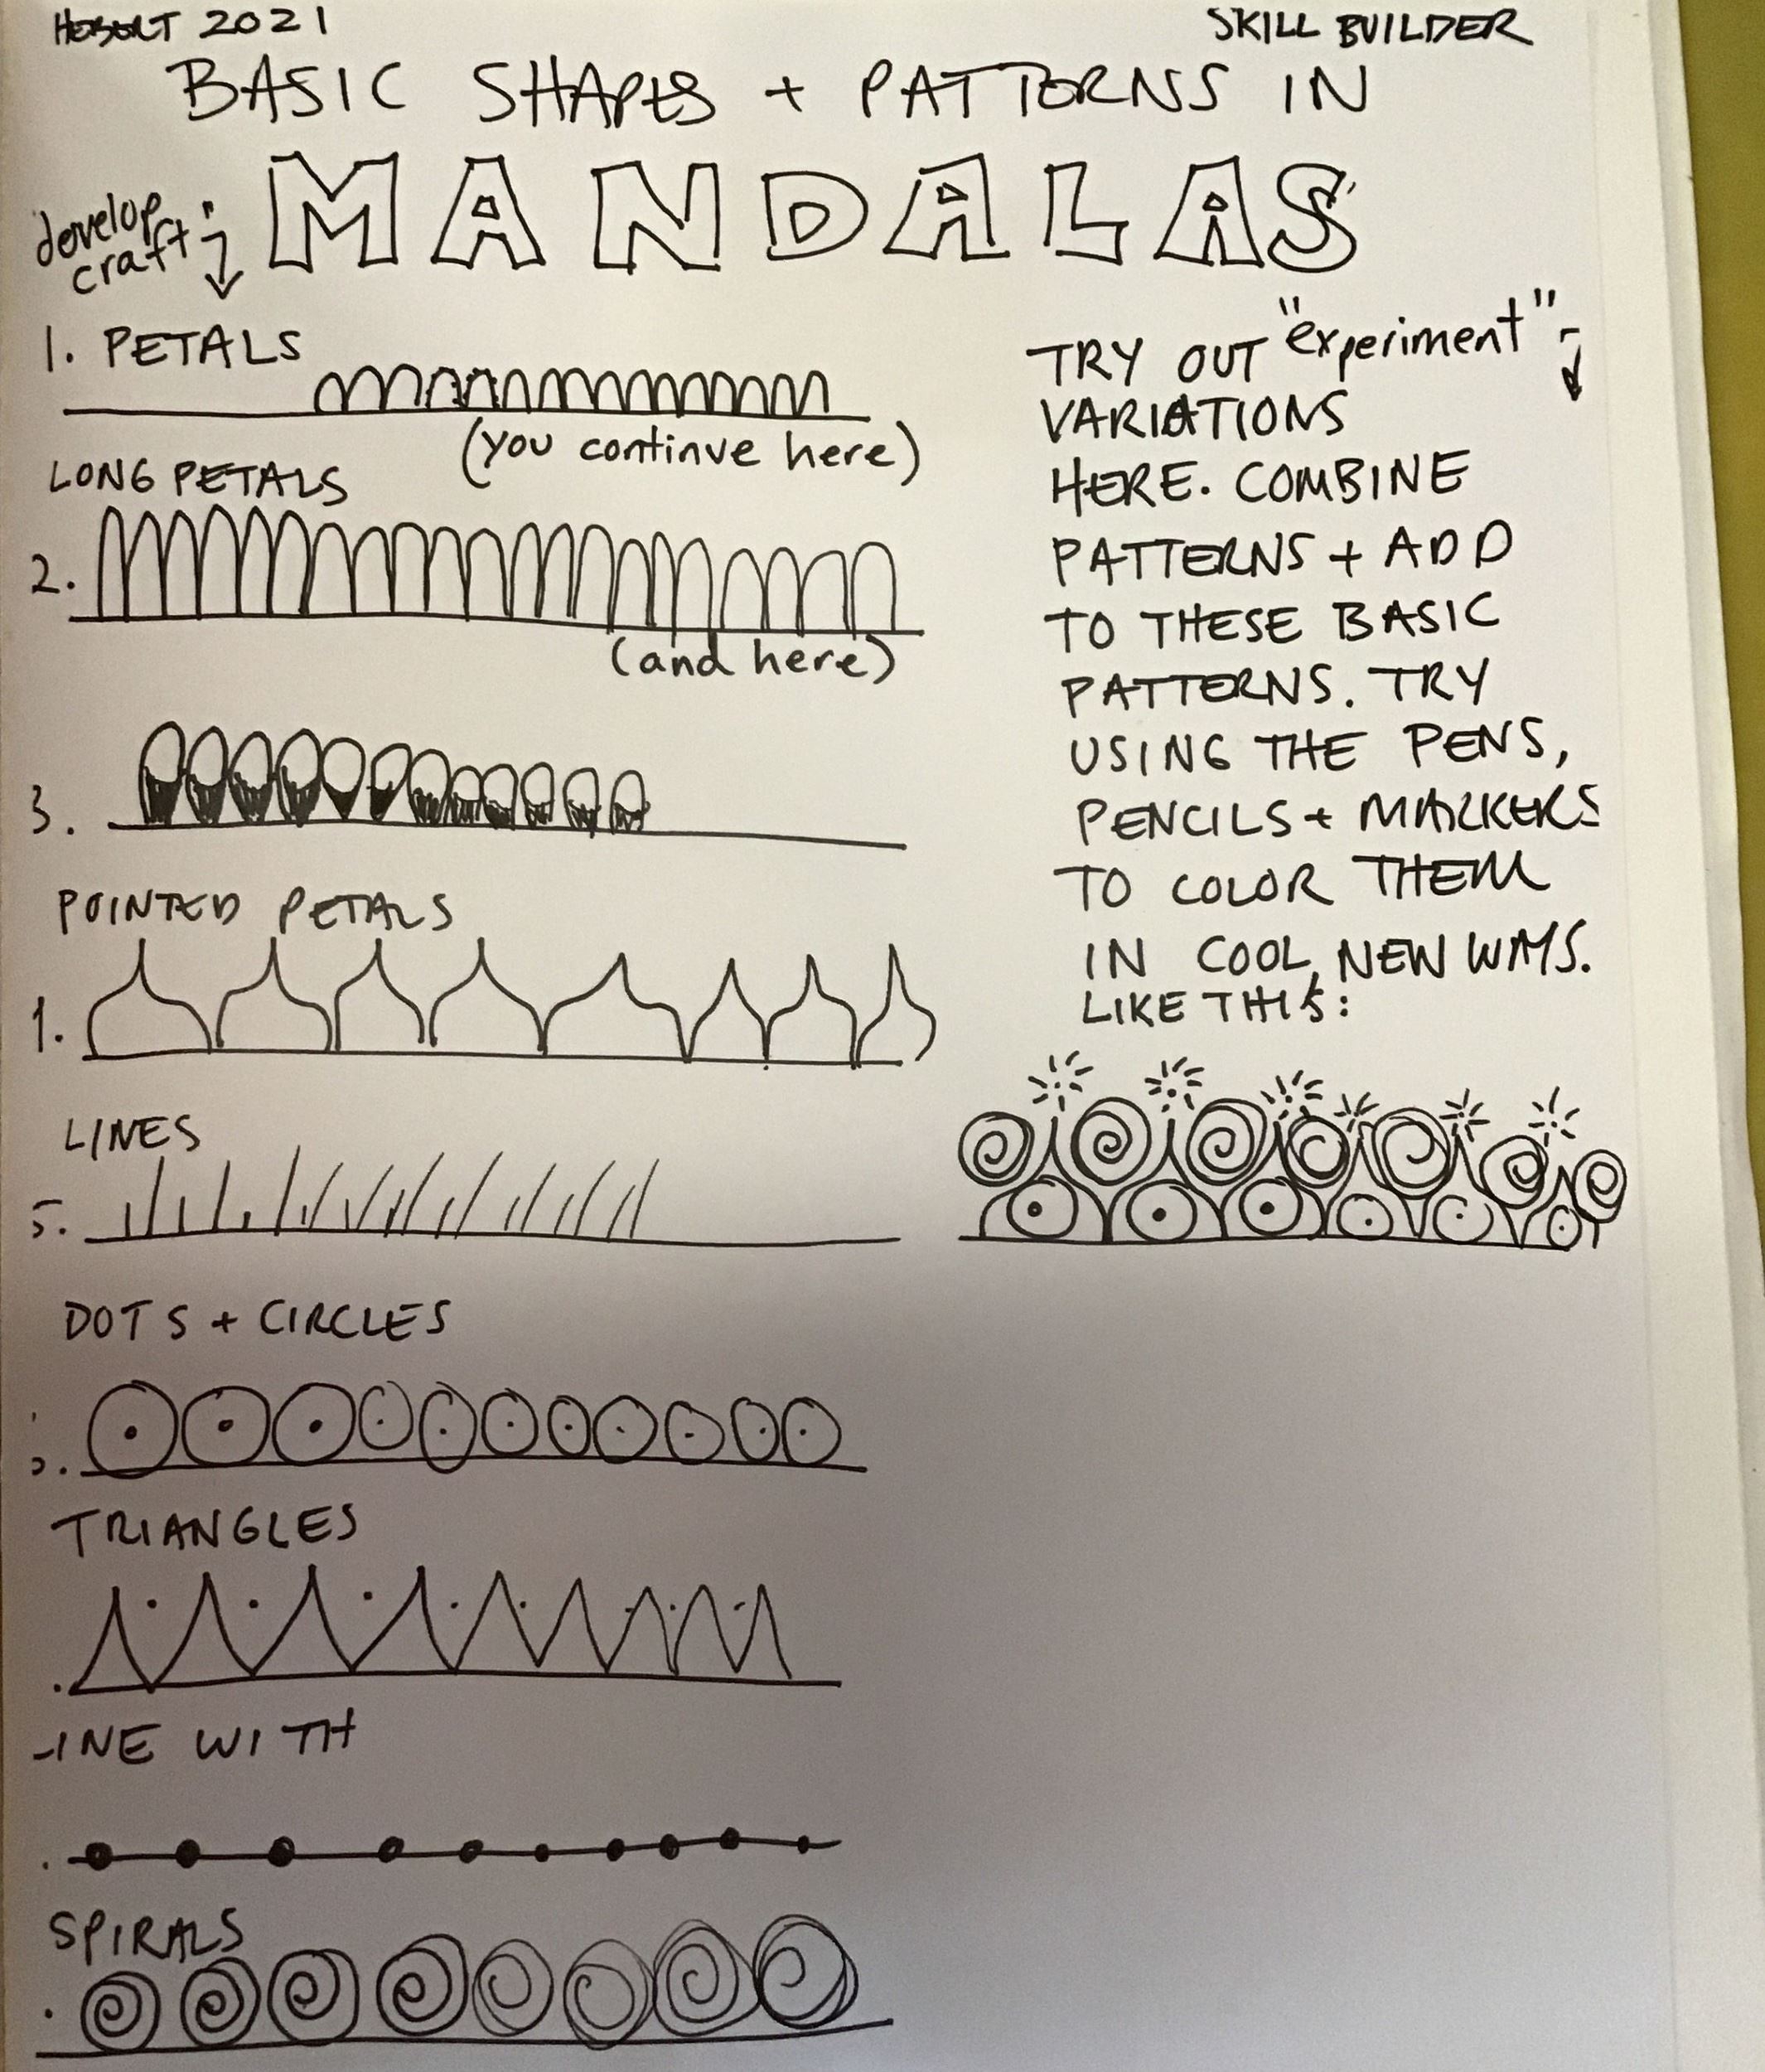 HEBERT 2021
SKILL BUILDER
BASIC SHAPES + PATTERNS IN
MANDALAS
develop
craft:
1. PETALS
(you continue here)
LONG PETALS
2.
(and here)
3.
POINTED PETALS
1.
LINES
5.
DOTS + CIRCLES
TRIANGLES
-INE WITH
SPIRALS
TRY OUT "experiment"
VARIATIONS
HERE. COMBINE
PATTERNS + ADD
TO THESE BASIC
PATTERNS. TRY
USING THE PENS,
PENCILS + MARKERS
TO COLOR THEM
IN COOL, NEW WAYS.
LIKE THIS: